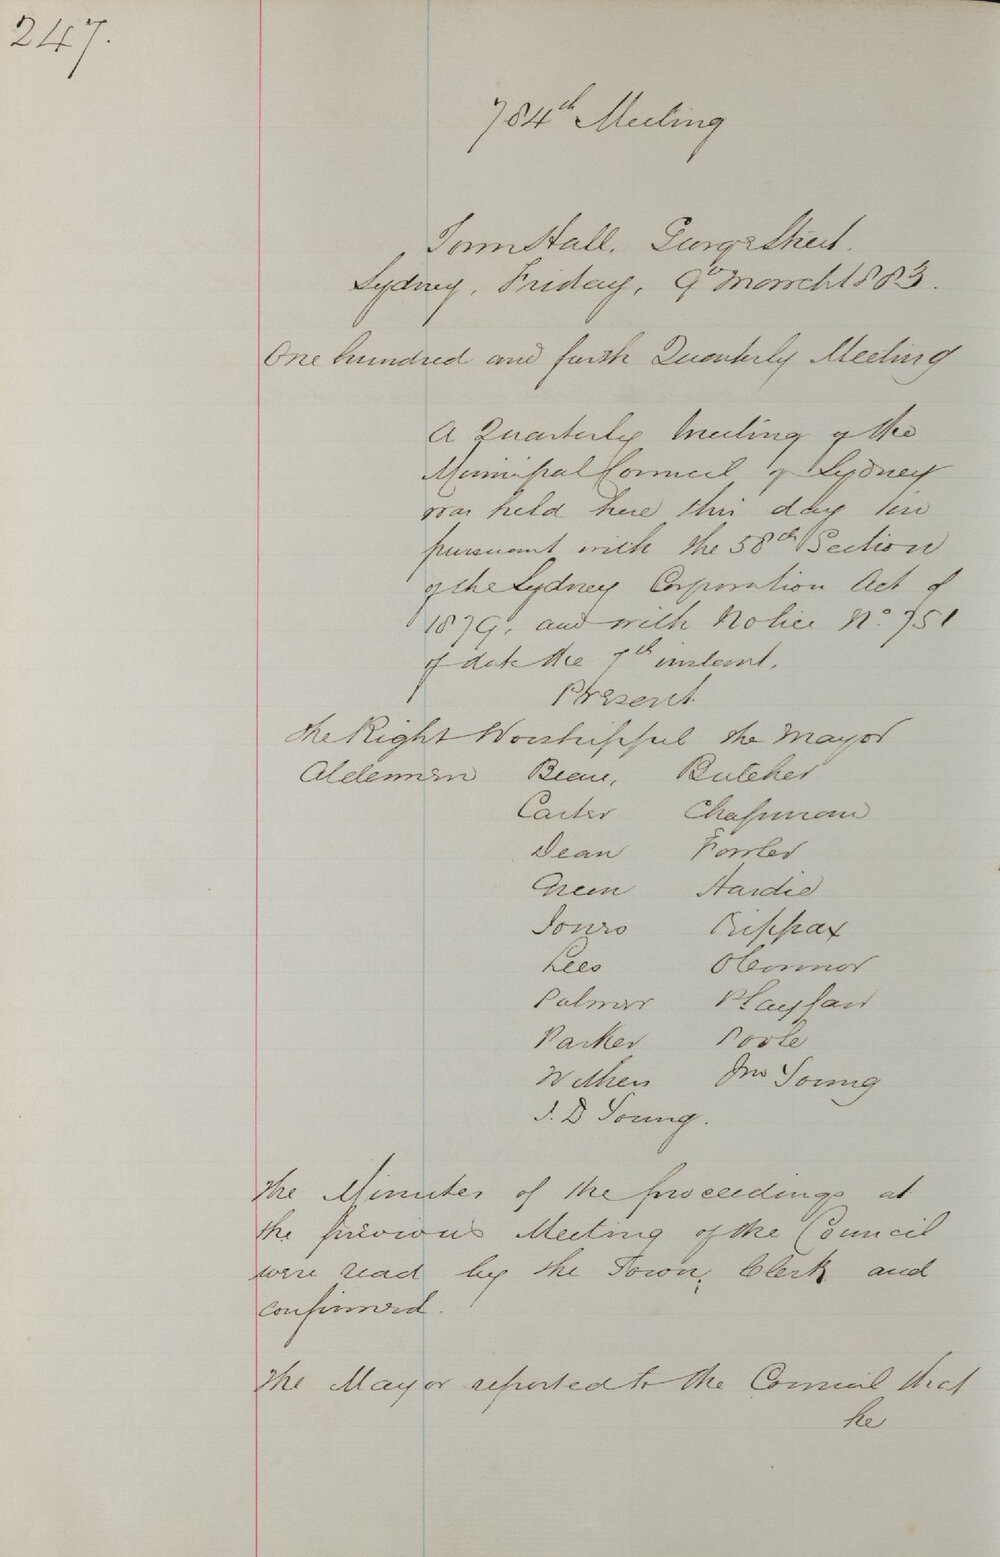 247.
784th Meeting
Town Hall, George Street.
Sydney, Friday, 9th March 1883.
One hundred and fourth Quarterly Meeting
A Quarterly Meeting of the
Municipal Council of Sydney
was held here this day in
pursuant with the 58th Section
of the Sydney Corporation Act of
1879, and with Notice No. 751
of date the 7th instant.
Present
The Right Worshipful the Mayor
Aldermen Beare, Butcher
Carter Chapman
Dean Fowler
Green Hardie
Jones Kippax
Lees O'Connor
Palmer Playfair
Parker Poole
Withers Jno Young
J. D Young.
The Minutes of the proceedings at
the previous Meeting of the Council
were read by the Town Clerk and
confirmed.
The Mayor reported to the Council that
he